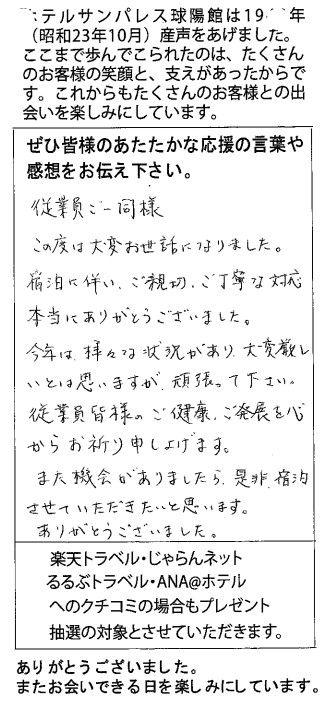 ホテルサンパレス球陽館は19 年
（昭和23年10月）産声をあげました。
ここまで歩んでこられたのは、たくさん
のお客様の笑顔と、支えがあったからで
す。これからもたくさんのお客様との出
会いを楽しみにしています。
ぜひ皆様のあたたかな応援の言葉や
感想をお伝え下さい。
従業員ご一同様
この度は大変お世話になりました。
宿泊に伴い、ご親切、ご丁寧な対応
本当にありがとうございました。
今年は、様々な状況があり、大変厳し
いとは思いますが、頑張って下さい。
従業員皆様のご健康、ご発展を心
からお祈り申し上げます。
また機会がありましたら、是非、宿泊
させていただきたいと思います。
ありがとうございました。
楽天トラベル・じゃらんネット
るるぶトラベル・ANA@ホテル
へのクチコミの場合もプレゼント
抽選の対象とさせていただきます。
ありがとうございました。
またお会いできる日を楽しみにしています。